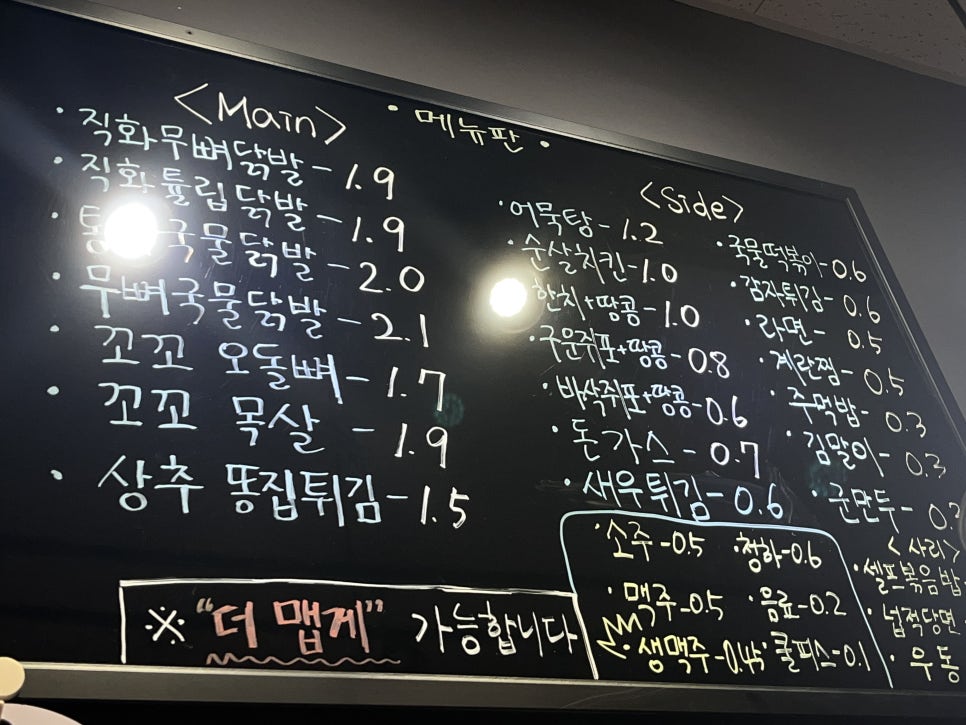 • 메뉴판 •
<Main>
• 직화무뼈닭발 - 1.9
• 직화튤립닭발 - 1.9
• 국물닭발 - 2.0
• 무뼈국물닭발 - 2.1
• 꼬꼬 오돌뼈 - 1.7
• 꼬꼬 목살 - 1.9
• 상추 똥집튀김 - 1.5
※ "더 맵게" 가능합니다
<Side>
• 어묵탕 - 1.2
• 순살치킨 - 1.0
한치+땅콩 - 1.0
• 구운쥐포+땅콩 - 0.8
• 바삭쥐포+땅콩 - 0.6
• 돈가스 - 0.7
• 새우튀김 - 0.6
• 국물떡볶이 - 0.6
• 감자튀김 - 0.6
• 라면 - 0.5
• 계란찜 - 0.5
• 주먹밥 - 0.3
• 김말이 - 0.3
• 군만두 -
<사리>
• 셀프볶음밥
• 넙적당면
• 우동
• 소주 - 0.5 • 청하 - 0.6
• 맥주 - 0.5 • 음료 - 0.2
• 생맥주 - 0.45 • 쿨피스 - 0.1